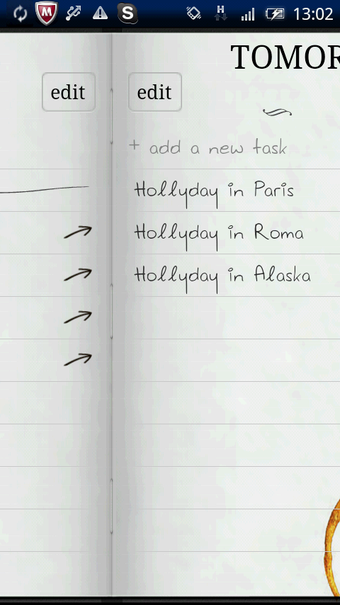 13:02
TOMOR
edit
edit
+ add a new task
Hollyday in Paris
Hollyday in Roma
Hollyday in Alaska